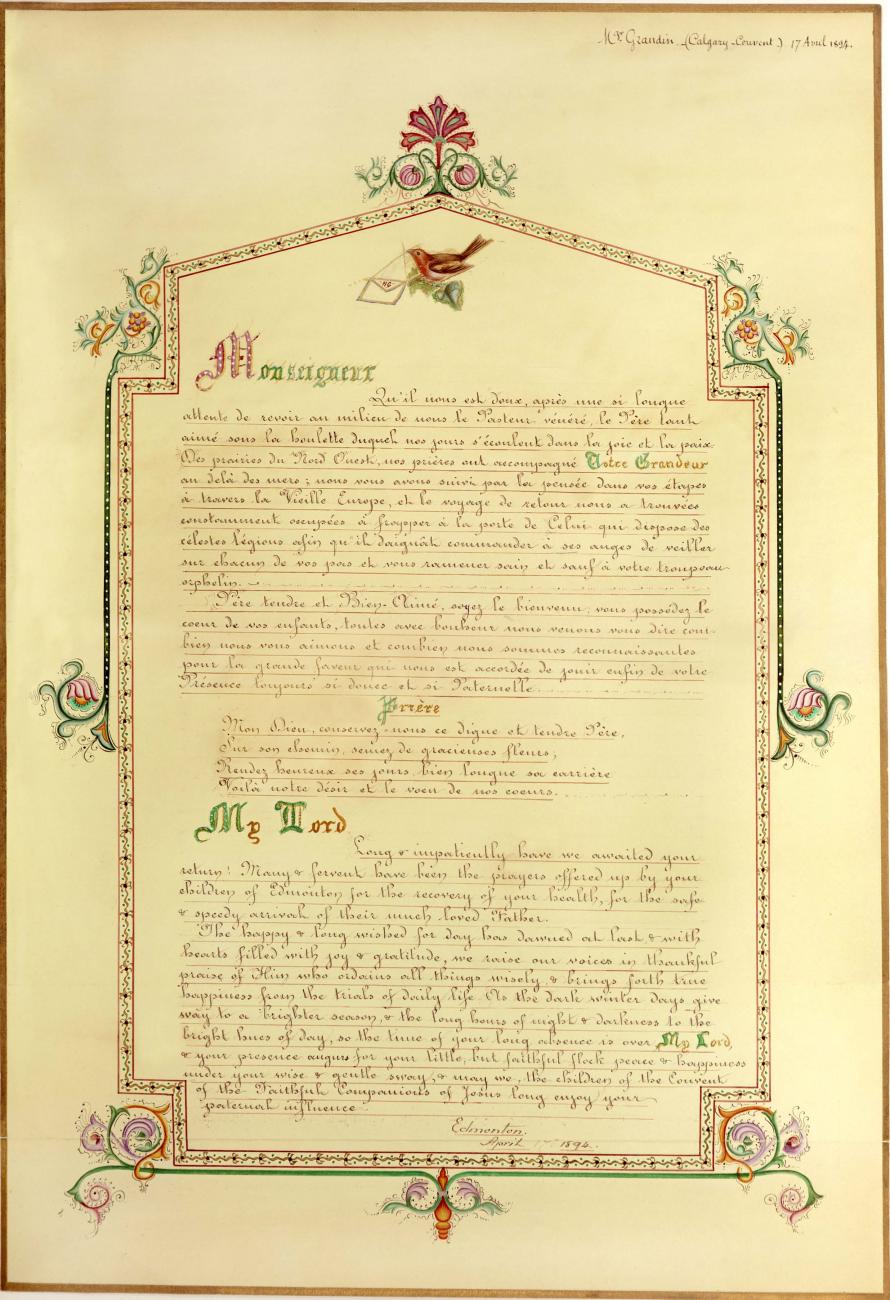 Mgr Grandin (Calgary-Couvent) 17 Avril 1894.
Monseigneur
Qu'il nous est doux, après une si longue
attente de revoir au milieu de nous le Pasteur vénéré, le Père tant
aimé sous la houlette duquel nos jours s'écoulent dans la joie et la paix.
Des prairies du Nord Ouest, nos prières ont accompagné Votre Grandeur
au delà des mers; nous vous avons suivi par la pensée dans vos étapes
à travers la Vieille Europe, et le voyage de retour nous a trouvées
constamment occupées à frapper à la porte de Celui qui dispose des
célestes légions afin qu'il daignât commander à ses anges de veiller
sur chacun de vos pas et vous ramener sain et sauf à votre troupeau
orphelin.
Père tendre et Bien-Aimé, soyez le bienvenu; vous possédez le
coeur de vos enfants, toutes avec bonheur nous venons vous dire com-
bien nous vous aimons et combien nous sommes reconnaissantes
pour la grande faveur qui nous est accordée de jouir enfin de votre
Présence toujours si douce et si Paternelle.
Prière
Mon Dieu, conservez-nous ce digne et tendre Père,
Sur son chemin, semez de gracieuses fleurs;
Rendez heureux ses jours, bien longue sa carrière
Voilà notre désir et le voeu de nos coeurs.
My Lord
Long & impatiently have we awaited your
return! Many & fervent have been the prayers offered up by your
children of Edmonton for the recovery of your health, for the safe
& speedy arrival of their much loved Father.
The happy & long wished for day has dawned at last & with
hearts filled with joy & gratitude, we raise our voices in thankful
praise of Him who ordains all things wisely, & brings forth true
happiness from the trials of daily life. As the dark winter days give
way to a brighter season, & the long hours of night & darkness to the
bright hues of day, so the time of your long absence is over My Lord,
& your presence augurs for your little, but faithful flock peace & happiness
under your wise & gentle sway, & may we, the children of the Convent
of the Faithful Companions of Jesus long enjoy your
paternal influence.
Edmonton.
April 17th 1894.